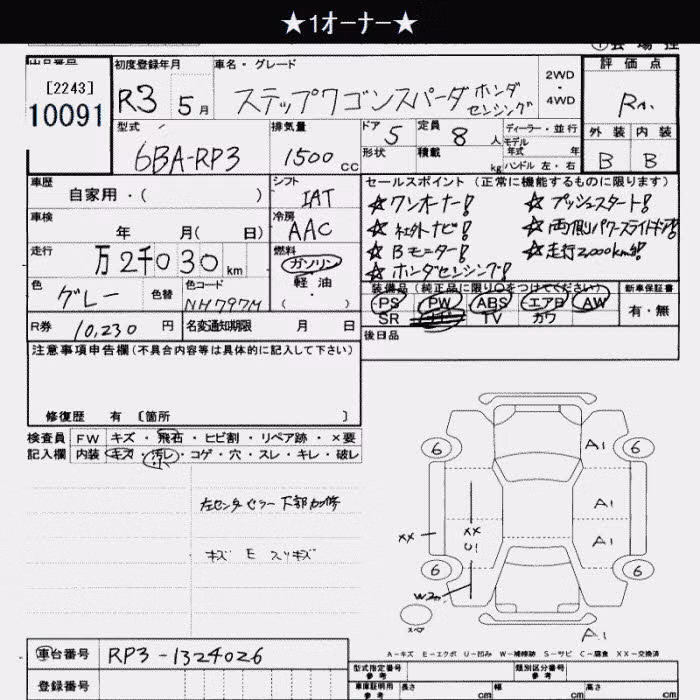 ★1オーナー★
[2243]
10091
初度登録年月
R3 5月
車名・グレード
ステップワゴンスパーダ ホンダセンシング
2WD
・
4WD
評価点
RA.
外装 内装
B B
型式
6BA-RP3
排気量
1500 cc
ドア 5
形状
定員 8 人
積載 kg
ディーラー・並行
モデル
年式 年
ハンドル 左・右
車歴
自家用・( )
シフト
IAT
車検
年 月( 日)
冷房
AAC
走行
万2千030km
燃料
ガソリン
軽油
( ・ )
色
グレー
色替
色コード
NH797M
R券 10,230 円
名変通知期限 月 日
セールスポイント(正常に機能するものに限ります)
☆ワンオーナー!
☆プッシュスタート!
☆社外ナビ!
☆両側パワースライドドア!
☆Bモニター!
☆走行2,000km台!
☆ホンダセンシング!
装備品(純正品に限り○をつけてください)
PS PW ABS エアB AW
SR TV カワ
新車保証書
有・無
後日品
注意事項申告欄(不具合内容等は具体的に記入して下さい)
修復歴 有 〔箇所 〕
検査員 FW キズ・飛石・ヒビ割・リペア跡・×要
記入欄 内装 キズ・汚レ・コゲ・穴・スレ・キレ・破レ
左センターピラー下部加修
キズ E スリキズ
6 6
A1
A1
A1
XX
XX
U1
6 6
W2
スペア
A1
A-キズ E-エクボ U-凹み W-補修跡 S-サビ C-腐食 XX-交換済
車台番号 RP3-1324026
登録番号
型式指定番号
参考
類別区分番号
参考
車庫証明用
参考
長さ cm 幅 cm 高さ cm